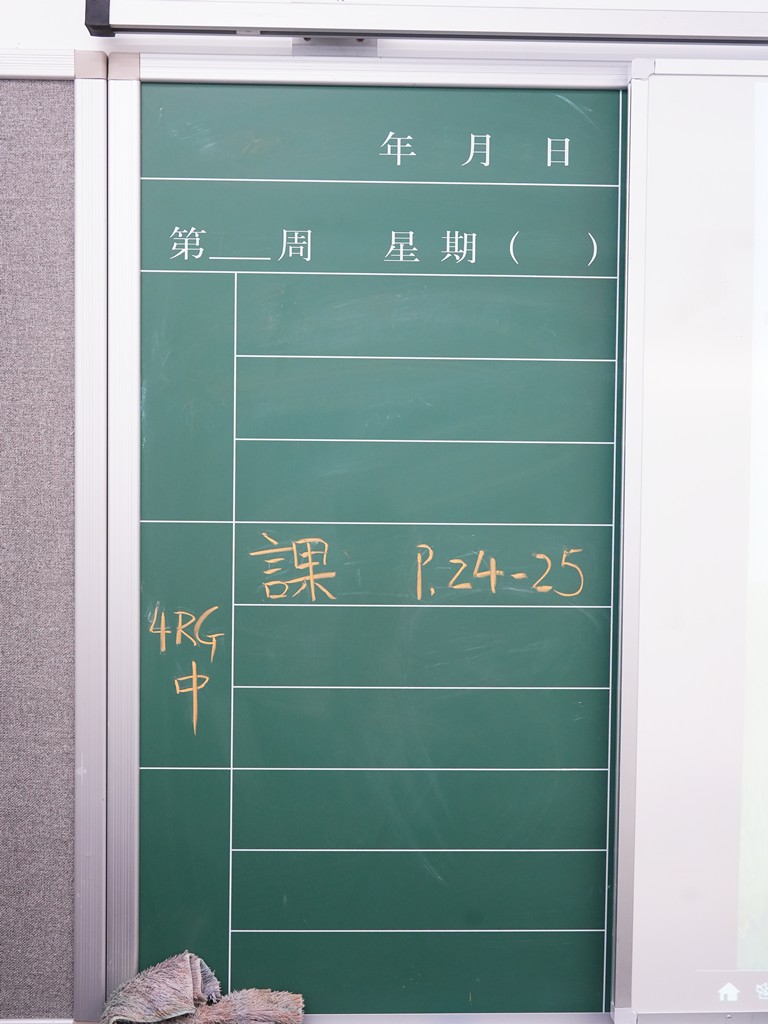 年 月 日
第___周 星期( )
課 P.24-25
4RG
中